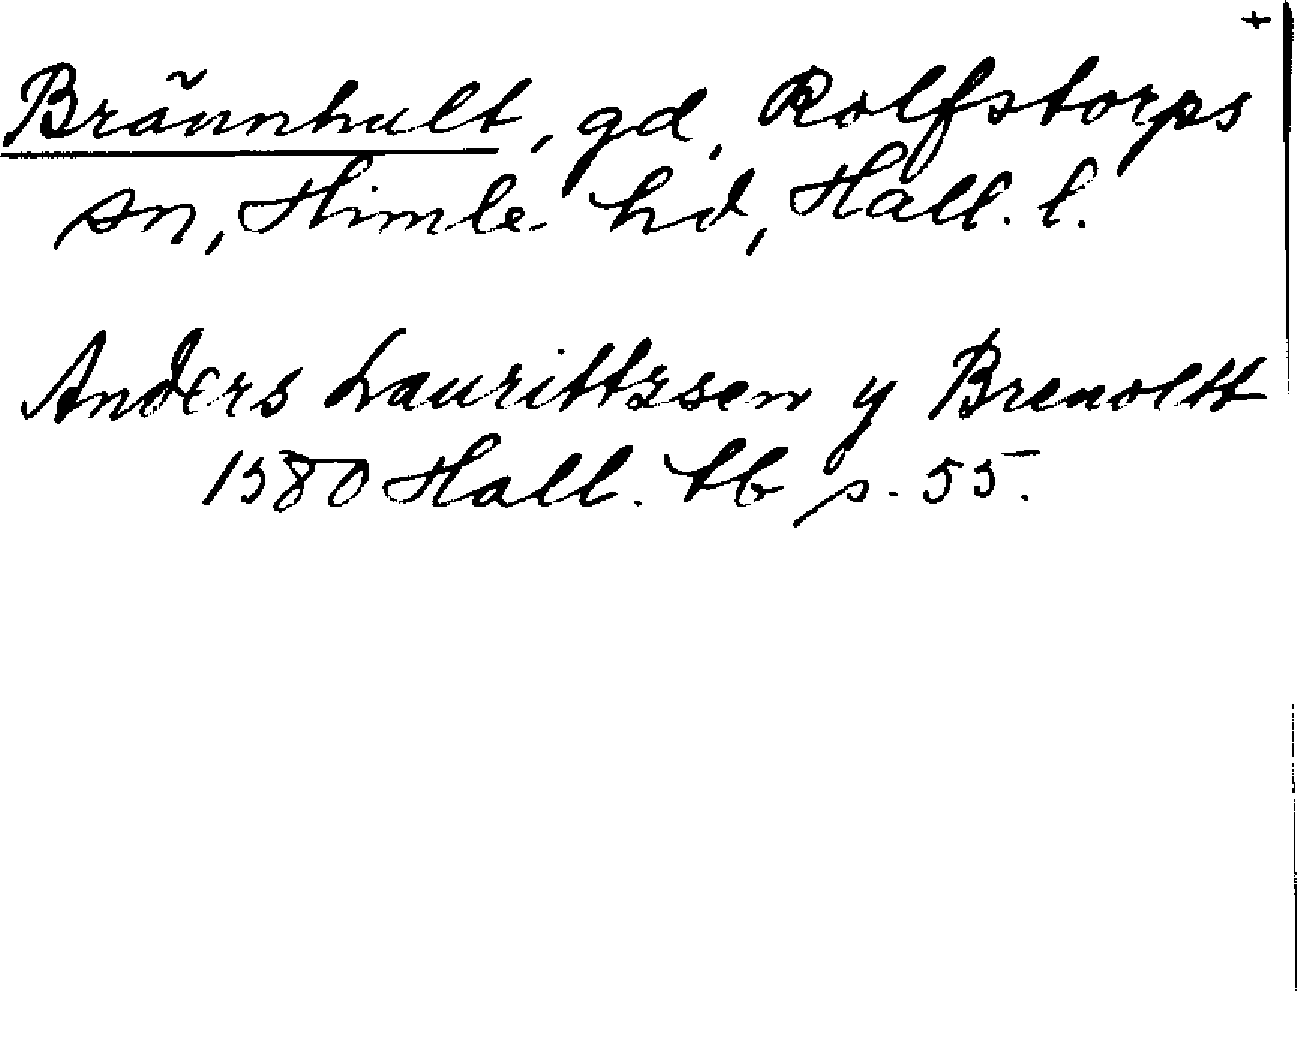 +
Brännhult, gd, Rolfstorps
sn, Himle hd, Hall. l.
Anders Laurittzsen y Brenoltt
1580 Hall. tb s. 55.